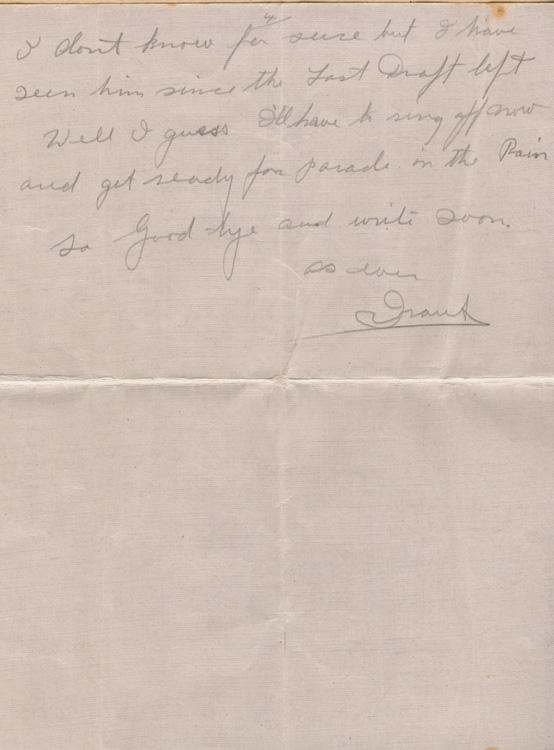 4
I don't know for sure but I have
seen him since the Last Draft left
Well I guess I'll have to ring off now
and get ready for parade in the Rain
so Good-bye and write soon.
as ever